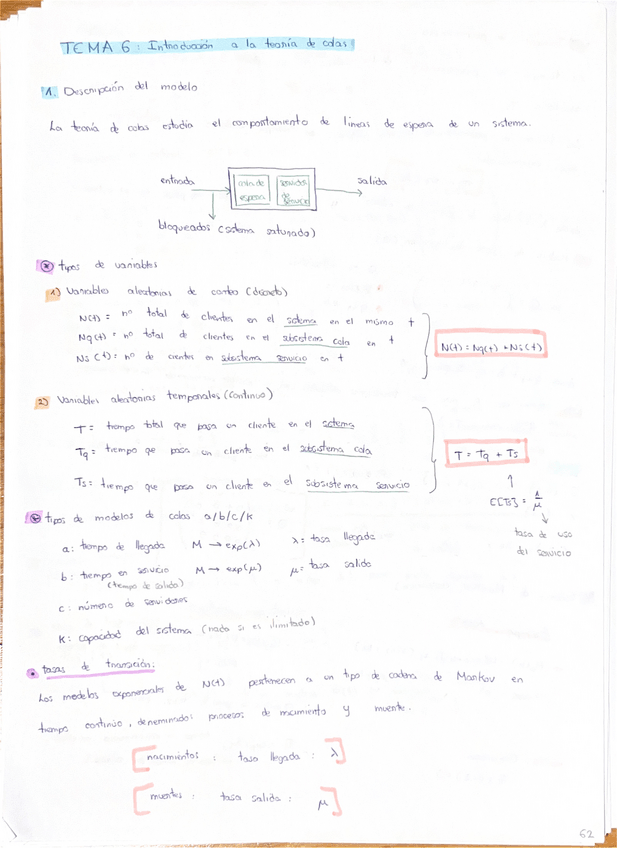 TEMA 6: Introducción a la teoría de colas
1. Descripción del modelo
La teoría de colas estudia el comportamiento de líneas de espera de un sistema.
entrada
línea de espera
servidor de servicio
salida
bloqueados (sistema saturado)
* tipos de variables
1) Variables aleatorias de conteo (discreto)
N(t) = nº total de clientes en el sistema en el mismo t
Nq(t) = nº total de clientes en el subsistema cola en t
Ns(t) = nº de cientes en subsistema servicio en t
N(t) = Nq(t) + Ns(t)
2) Variables aleatorias temporales (continuo)
T = tiempo total que pasa un cliente en el sistema
Tq = tiempo que pasa un cliente en el subsistema cola
Ts = tiempo que pasa un cliente en el subsistema servicio
T = Tq + Ts
E[Ts] = 1/μ
tasa de uso
del servicio
tipos de modelos de colas a/b/c/k
a: tiempo de llegada M → exp(λ) λ = tasa llegada
b: tiempo en servicio M → exp(μ) μ = tasa salida
(tiempo de salida)
c: número de servidores
K: capacidad del sistema (nada si es ilimitado)
• tasas de transición:
Los modelos exponenciales de N(t) pertenecen a un tipo de cadena de Markov en
tiempo continuo, denominado: procesos de nacimiento y muerte.
nacimientos : tasa llegada : λ
muertes : tasa salida : μ
62